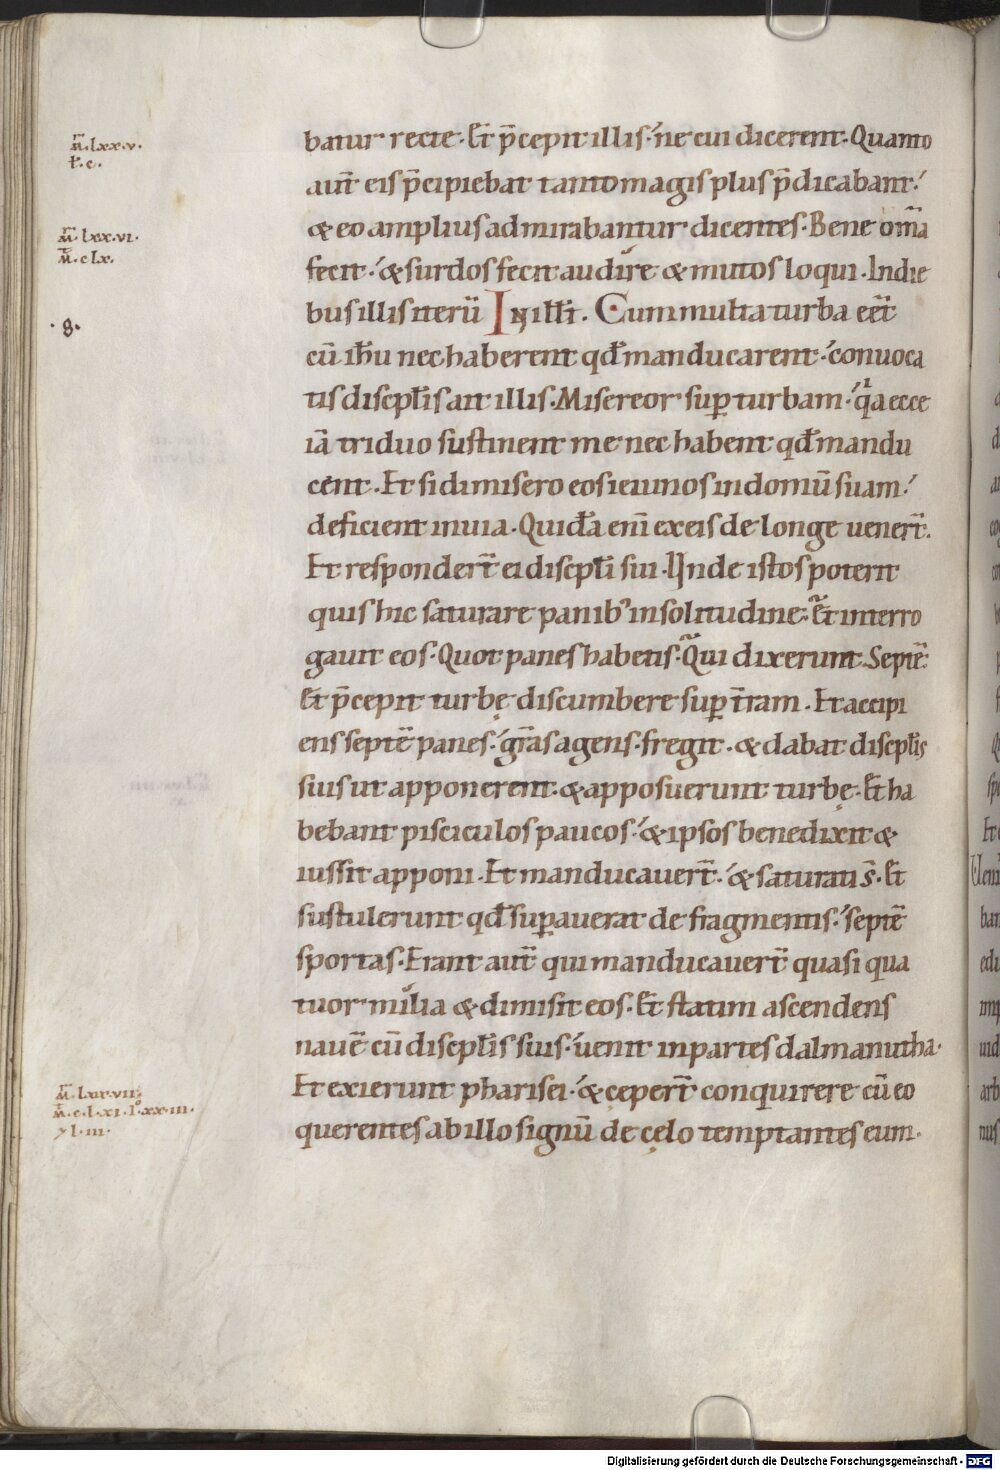 m̅. lxx.v.
t̅. c.
batur recte. Et p̅cepit illis. ne cui dicerent. Quanto
aut̅ eis p̅cipiebat tanto magis plus p̅dicabant.
m̅. lxx.vi.
m̅. clx.
& eo amplius admirabantur dicentes. Bene om̅a
fecit. & surdos fecit audire & mutos loqui. In die
·8·
bus illis iteru̅ In ill̅i. Cum multa turba ee̅t
cu̅ ih̅u nec haberent qd̅ manducarent. conuoca
tis discipl̅is ait illis. Misereor sup̲ turbam. q̅a ecce
ia̅ triduo sustinent me nec habent qd̅ mandu
cent. Et si dimisero eos ieiunos in domu̅ suam.
deficient in uia. Quida̅ eni̅ ex eis de longe uener̅t.
Et responder̅t ei discipl̅i sui. Unde istos poterit
quis hic saturare panib' in solitudine. Et interro
gauit eos. Quot panes habetis. Qui dixerunt. Septe̅.
Et p̅cepit turbę discumbere sup̲ t̅ram. Et accipi
ens septe̅ panes. gr̅as agens. fregit. & dabat discipl̅is
suis ut apponerent. & apposuerunt turbę. Et ha
bebant pisciculos paucos. & ipsos benedixit &
iussit apponi. Et manducauer̅t. & saturati s̅. Et
sustulerunt qd̅ sup̲auerat de fragmentis. septe̅
sportas. Erant aut̅ qui manducauer̅t quasi qua
tuor milia & dimisit eos. Et statim ascendens
naue̅ cu̅ discipl̅is suis. uenit in partes dalmanutha.
m̅. lxx.vii.
m̅. c.lxi. l° xx.iii.
Et exierunt pharisei. & ceper̅t conquirere cu̅ eo
querentes ab illo signu̅ de cęlo temptantes eum.
Digitalisierung gefördert durch die Deutsche Forschungsgemeinschaft - DFG